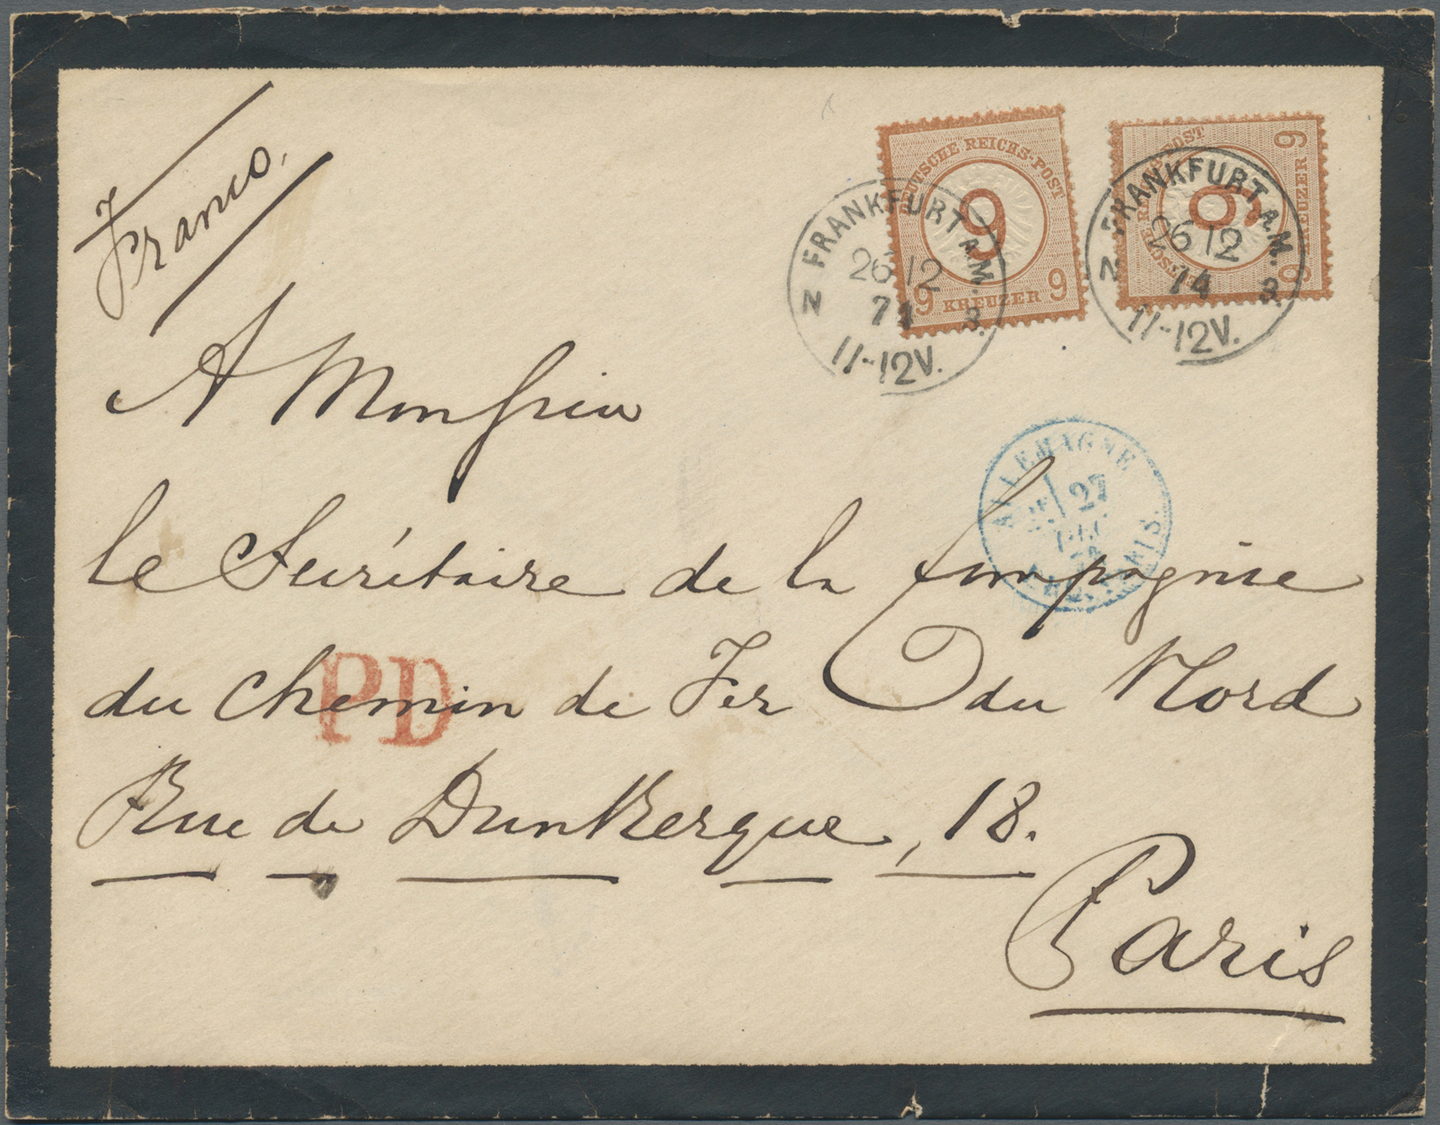 Franco.
DEUTSCHE REICHS-POST
9
9 KREUZER 9
FRANKFURT A.M.
26 12
74
11-12V.
9
9 KREUZER 9
FRANKFURT A.M.
26 12
74
11-12V.
A Monsieur
ALLEMAGNE
27
DEC
le Secrétaire de la Compagnie
du Chemin de Fer du Nord
PD
Rue de Dunkerque, 18.
Paris